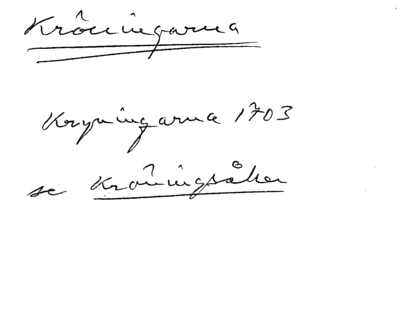 Kröningarna
Kryningarna 1703
se Kröningsåker